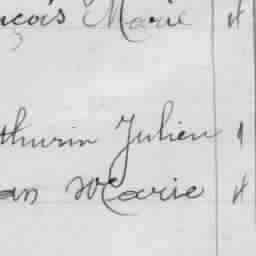 çois Marie "
thurin Julien "
an Marie "